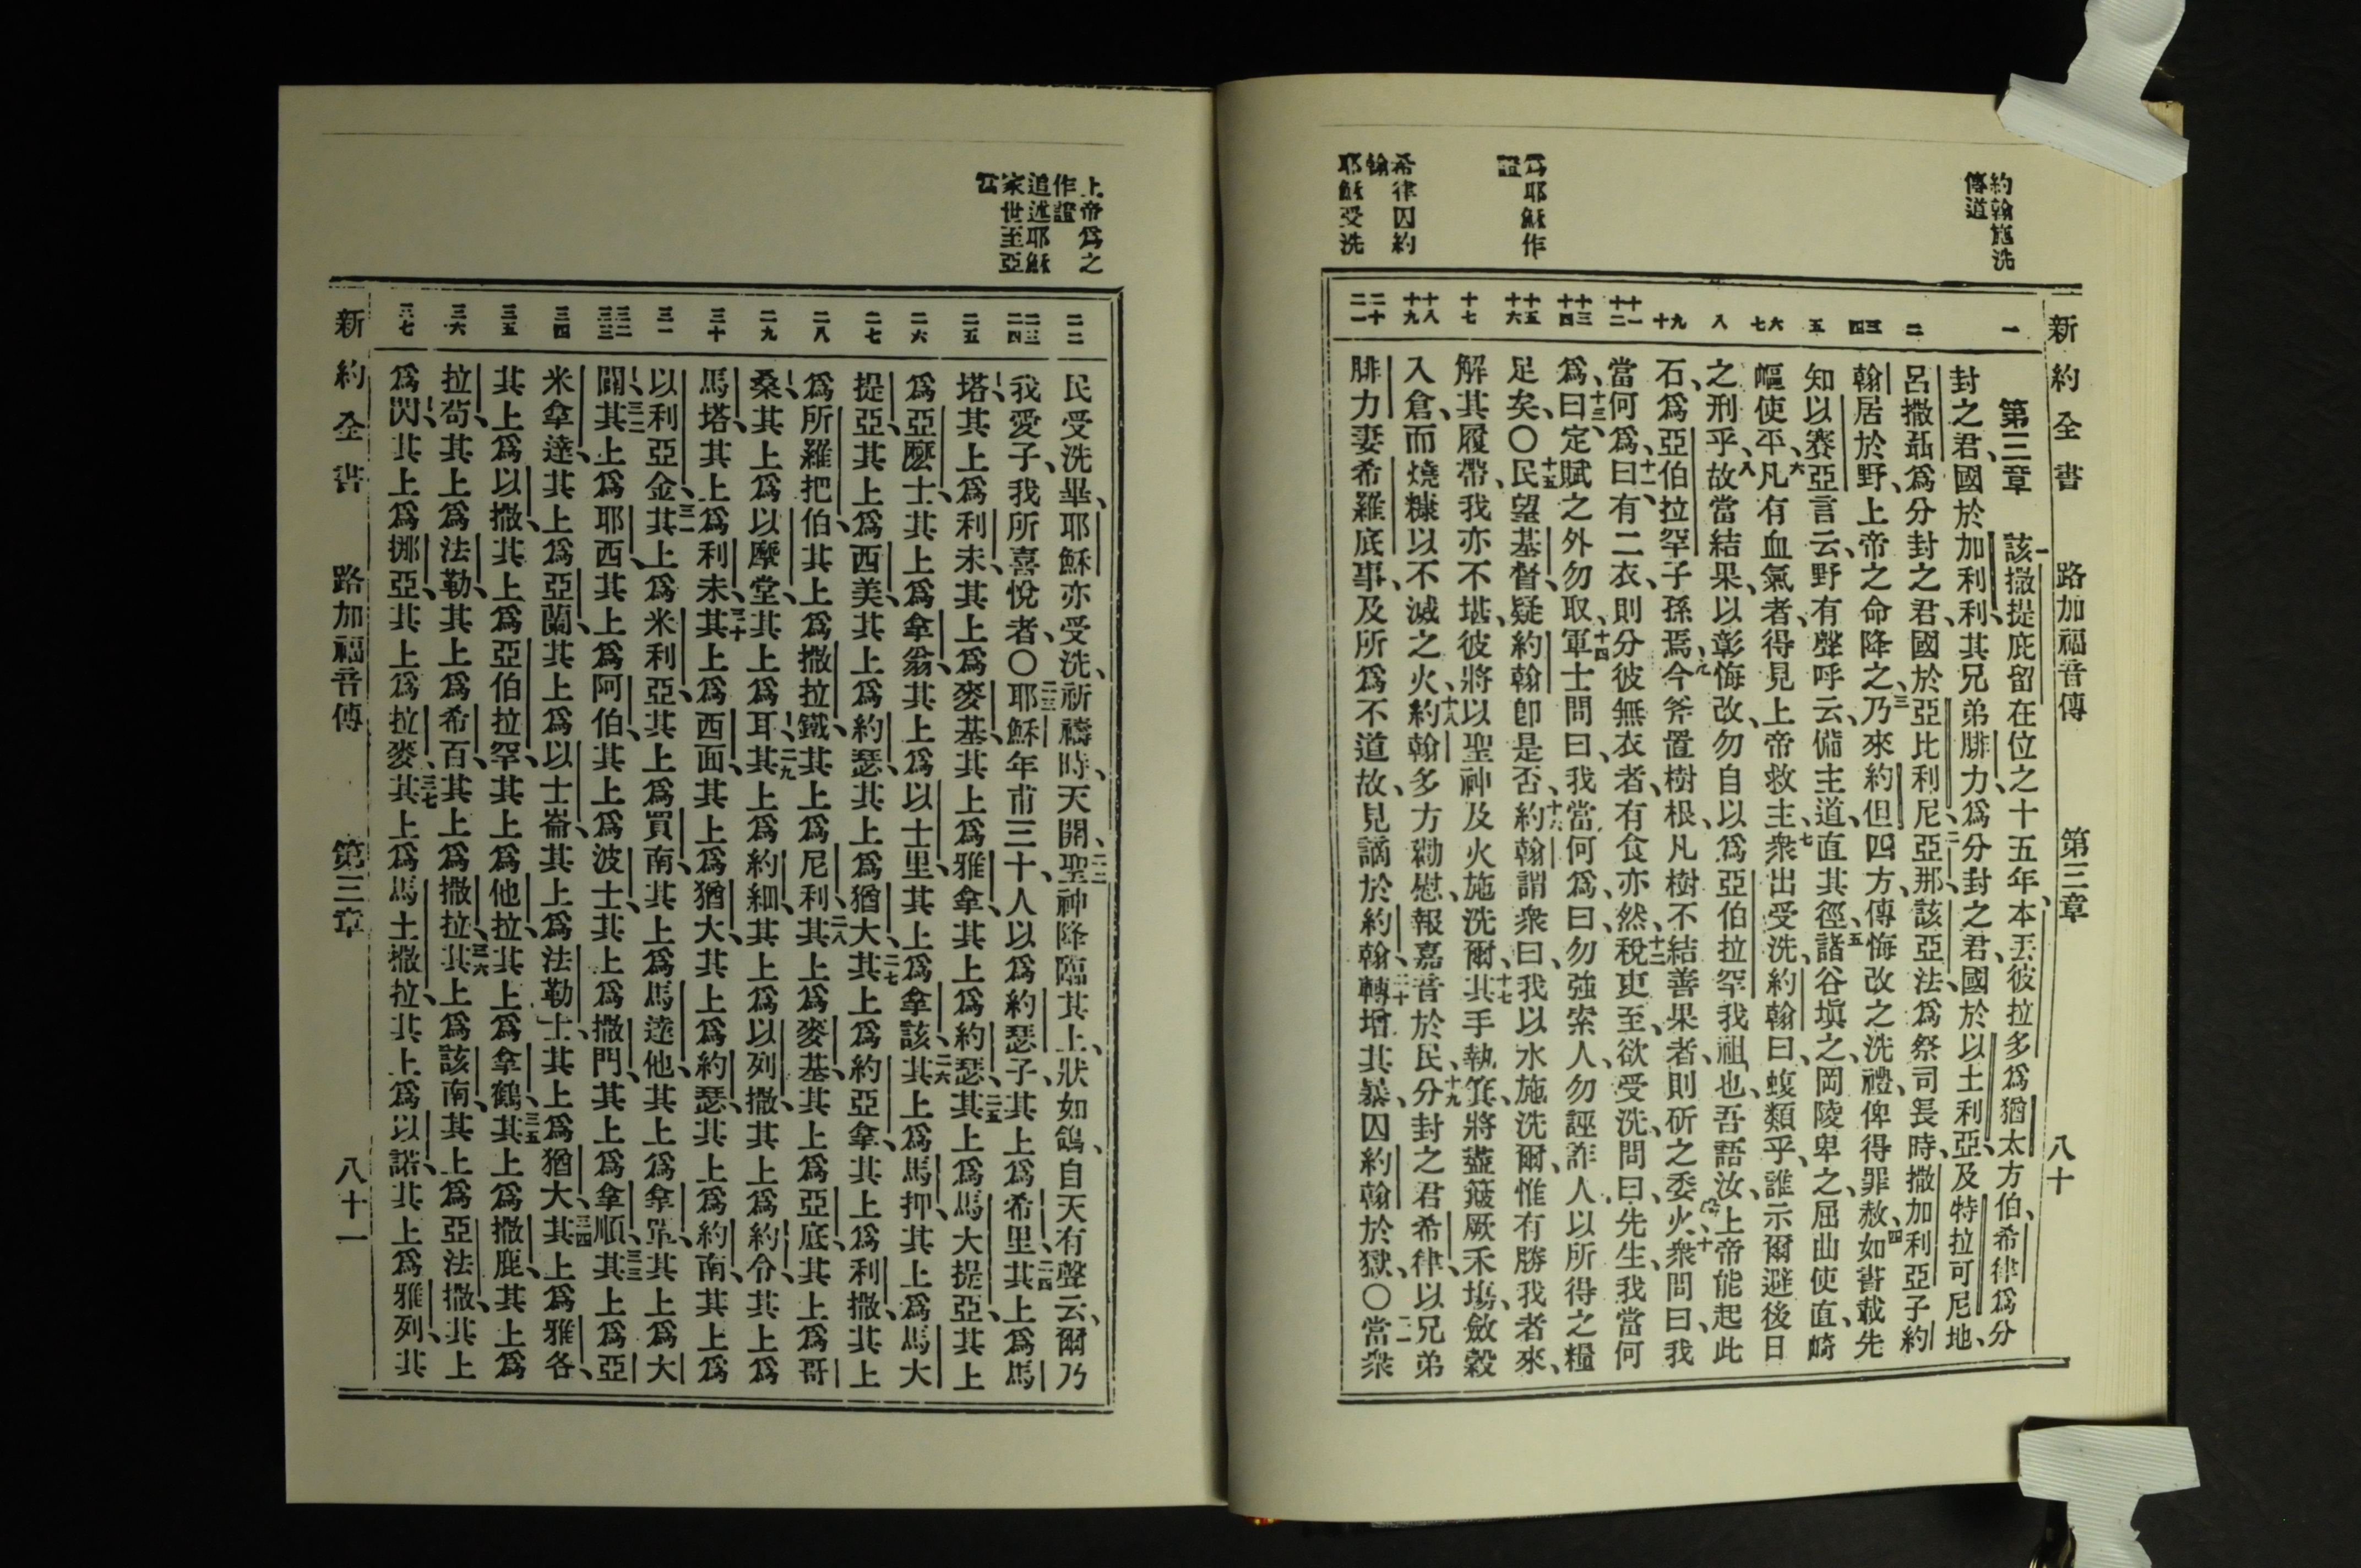 新約全書 路加福音傳 第三章 八十
約翰施洗
傳道
爲耶穌作
證
希律囚約
翰
耶穌受洗
一
二
三
四
五
六
七
八
九
十
十一
十二
十三
十四
十五
十六
十七
十八
十九
二十
二一
第三章 一該撒提庇留在位之十五年、本丟彼拉多爲猶太方伯、希律爲分
封之君、國於加利利、其兄弟腓力、爲分封之君、國於以土利亞、及特拉可尼地、
呂撒聶爲分封之君、國於亞比利尼、二亞那、該亞法、爲祭司長時、撒加利亞子約
翰居於野、上帝之命降之、三乃來約但四方、傳悔改之洗禮、俾得罪赦、四如書載先
知以賽亞言云、野有聲呼云、備主道、直其徑、五諸谷塡之、岡陵卑之、屈曲使直、崎
嶇使平、六凡有血氣者、得見上帝救主、七衆出受洗、約翰曰、蝮類乎、誰示爾避後日
之刑乎、八故當結果、以彰悔改、勿自以爲亞伯拉罕我祖也、吾語汝、上帝能起此
石、爲亞伯拉罕子孫焉、九今斧置樹根、凡樹不結善果者、則斫之委火、十衆問曰、我
當何爲、十一曰、有二衣、則分彼無衣者、有食亦然、十二稅吏至、欲受洗、問曰、先生、我當何
爲、十三曰、定賦之外勿取、十四軍士問曰、我當何爲、曰、勿強索人、勿誣詐人、以所得之糧
足矣、〇十五民望基督、疑約翰卽是否、十六約翰謂衆曰、我以水施洗爾、惟有勝我者來、
解其履帶、我亦不堪、彼將以聖神及火施洗爾、十七其手執箕、將盡簸厥禾塲、斂穀
入倉、而燒糠以不滅之火、十八約翰多方勸慰、報嘉音於民、十九分封之君希律、以兄弟
腓力妻希羅底事、及所爲不道故、見謫於約翰、二十轉增其暴、囚約翰於獄、〇二一當衆
上帝爲之
作證
追述耶穌
家世至亞
當
二二
二三
二四
二五
二六
二七
二八
二九
三十
三一
三二
三三
三四
三五
三六
三七
民受洗畢、耶穌亦受洗、祈禱時、天開、二二聖神降臨其上、狀如鴿、自天有聲云、爾乃
我愛子、我所喜悅者、〇二三耶穌年甫三十、人以爲約瑟子、其上爲希里、二四其上爲馬
塔、其上爲利未、其上爲麥基、其上爲雅拿、其上爲約瑟、二五其上爲馬大提亞、其上
爲亞麼士、其上爲拿翁、其上爲以士里、其上爲拿該、二六其上爲馬押、其上爲馬大
提亞、其上爲西美、其上爲約瑟、其上爲猶大、二七其上爲約亞拿、其上爲利撒、其上
爲所羅把伯、其上爲撒拉鐵、其上爲尼利、二八其上爲麥基、其上爲亞底、其上爲哥
桑、其上爲以摩堂、其上爲耳、二九其上爲約細、其上爲以列撒、其上爲約令、其上爲
馬塔、其上爲利未、三十其上爲西面、其上爲猶大、其上爲約瑟、其上爲約南、其上爲
以利亞金、三一其上爲米利亞、其上爲買南、其上爲馬達他、其上爲拿單、其上爲大
闢、三二其上爲耶西、其上爲阿伯、其上爲波士、其上爲撒門、其上爲拿順、三三其上爲亞
米拿達、其上爲亞蘭、其上爲以士崙、其上爲法勒士、其上爲猶大、三四其上爲雅各、
其上爲以撒、其上爲亞伯拉罕、其上爲他拉、其上爲拿鶴、三五其上爲撒鹿、其上爲
拉苟、其上爲法勒、其上爲希百、其上爲撒拉、三六其上爲該南、其上爲亞法撒、其上
爲閃、其上爲挪亞、其上爲拉麥、三七其上爲馬土撒拉、其上爲以諾、其上爲雅列、其
新約全書 路加福音傳 第三章 八十一